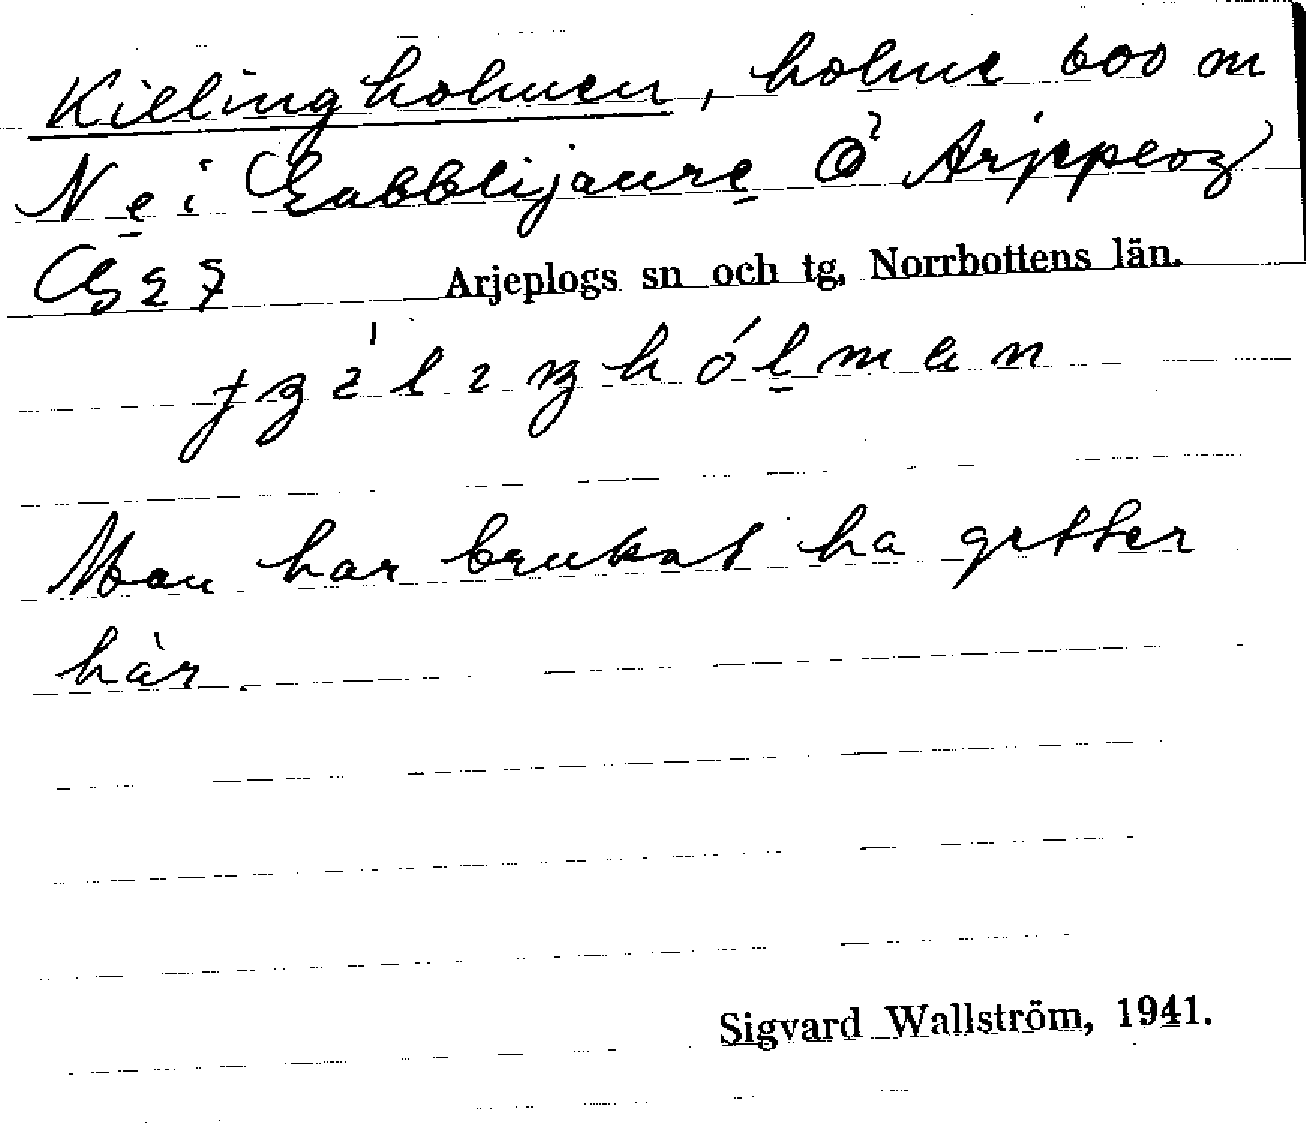 Killingholmen, holme 600 m
N e i Gabblijaure Ö Arjeplog
G 2 7 Arjeplogs sn och tg, Norrbottens län.
Man har brukat ha getter
här.
Sigvard Wallström, 1941.